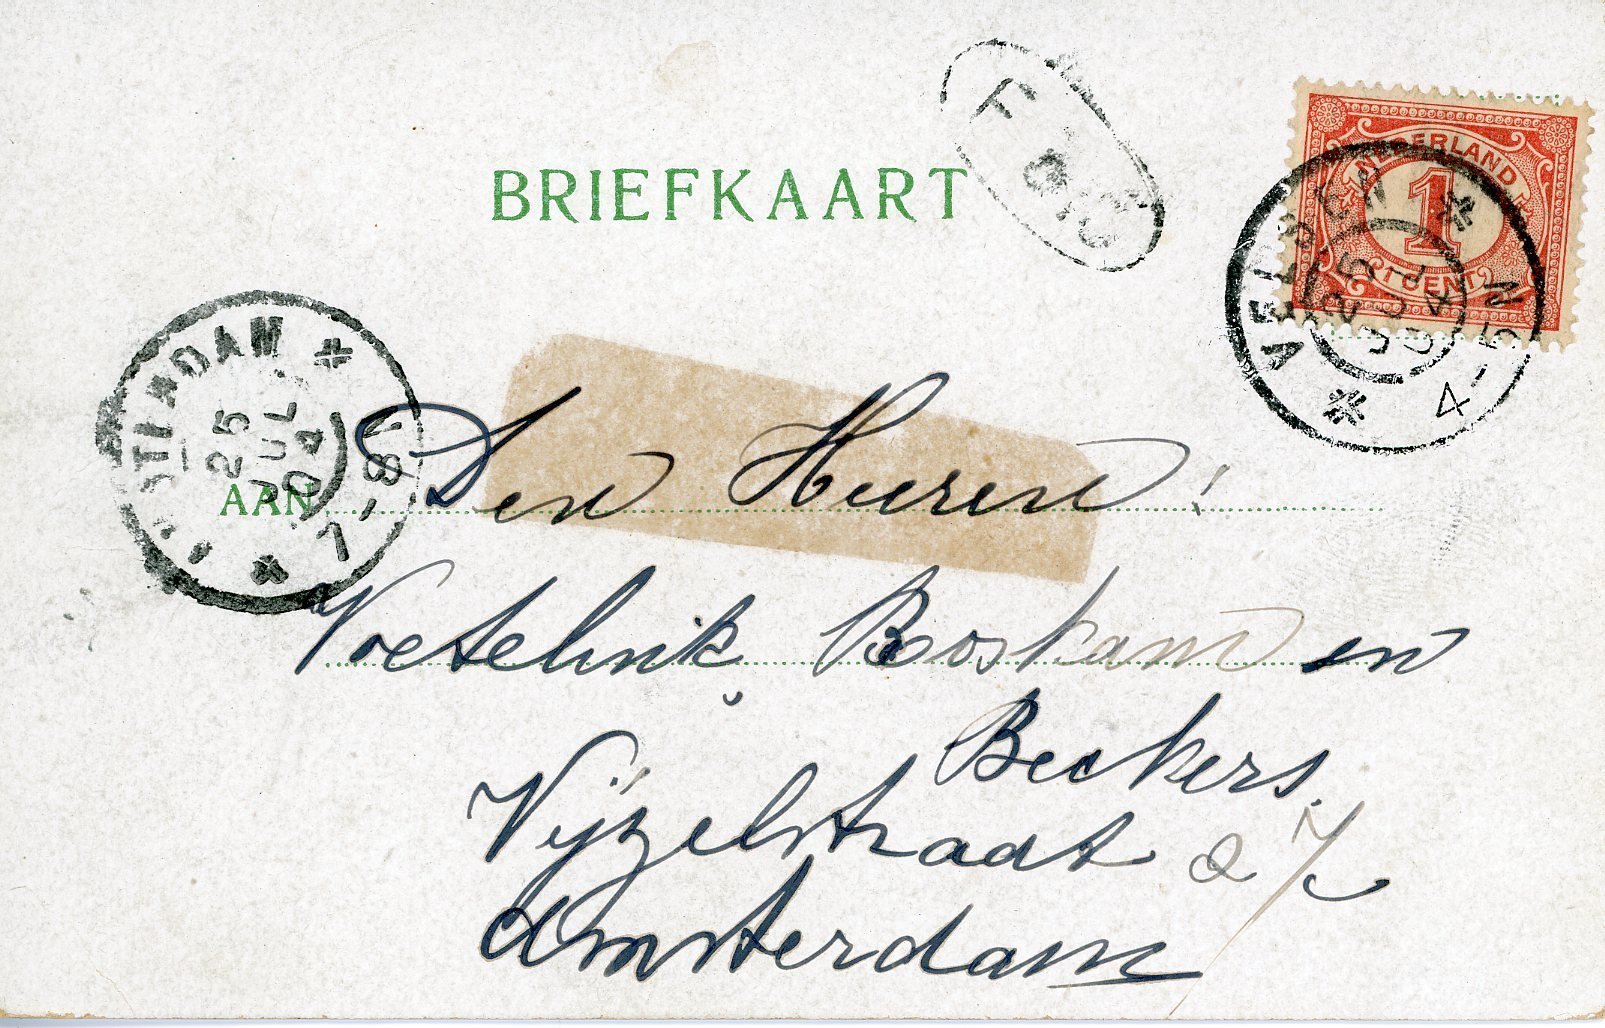 BRIEFKAART
NEDERLAND
1
1 CENT
VELSEN
25
JUL
04
4-5 N
AMSTERDAM
25
JUL
04
7-8
AAN Den Heeren!
Voetelink, Boskam en
Beckers.
Vijzelstraat
Amsterdam